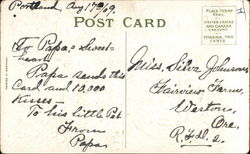 Portland, Aug 17 '09.
POST CARD
PLACE STAMP HERE
UNITED STATES
AND CANADA
ONE CENT
FOREIGN, TWO CENTS
To Papa's Sweet-
heart
Papa sends this
Card and 10,000
Kisses —
To his little Pet
From
Papa
Miss Silva Johnson
Fairview Farm,
Weston,
Ore.
R.F.D. 2.